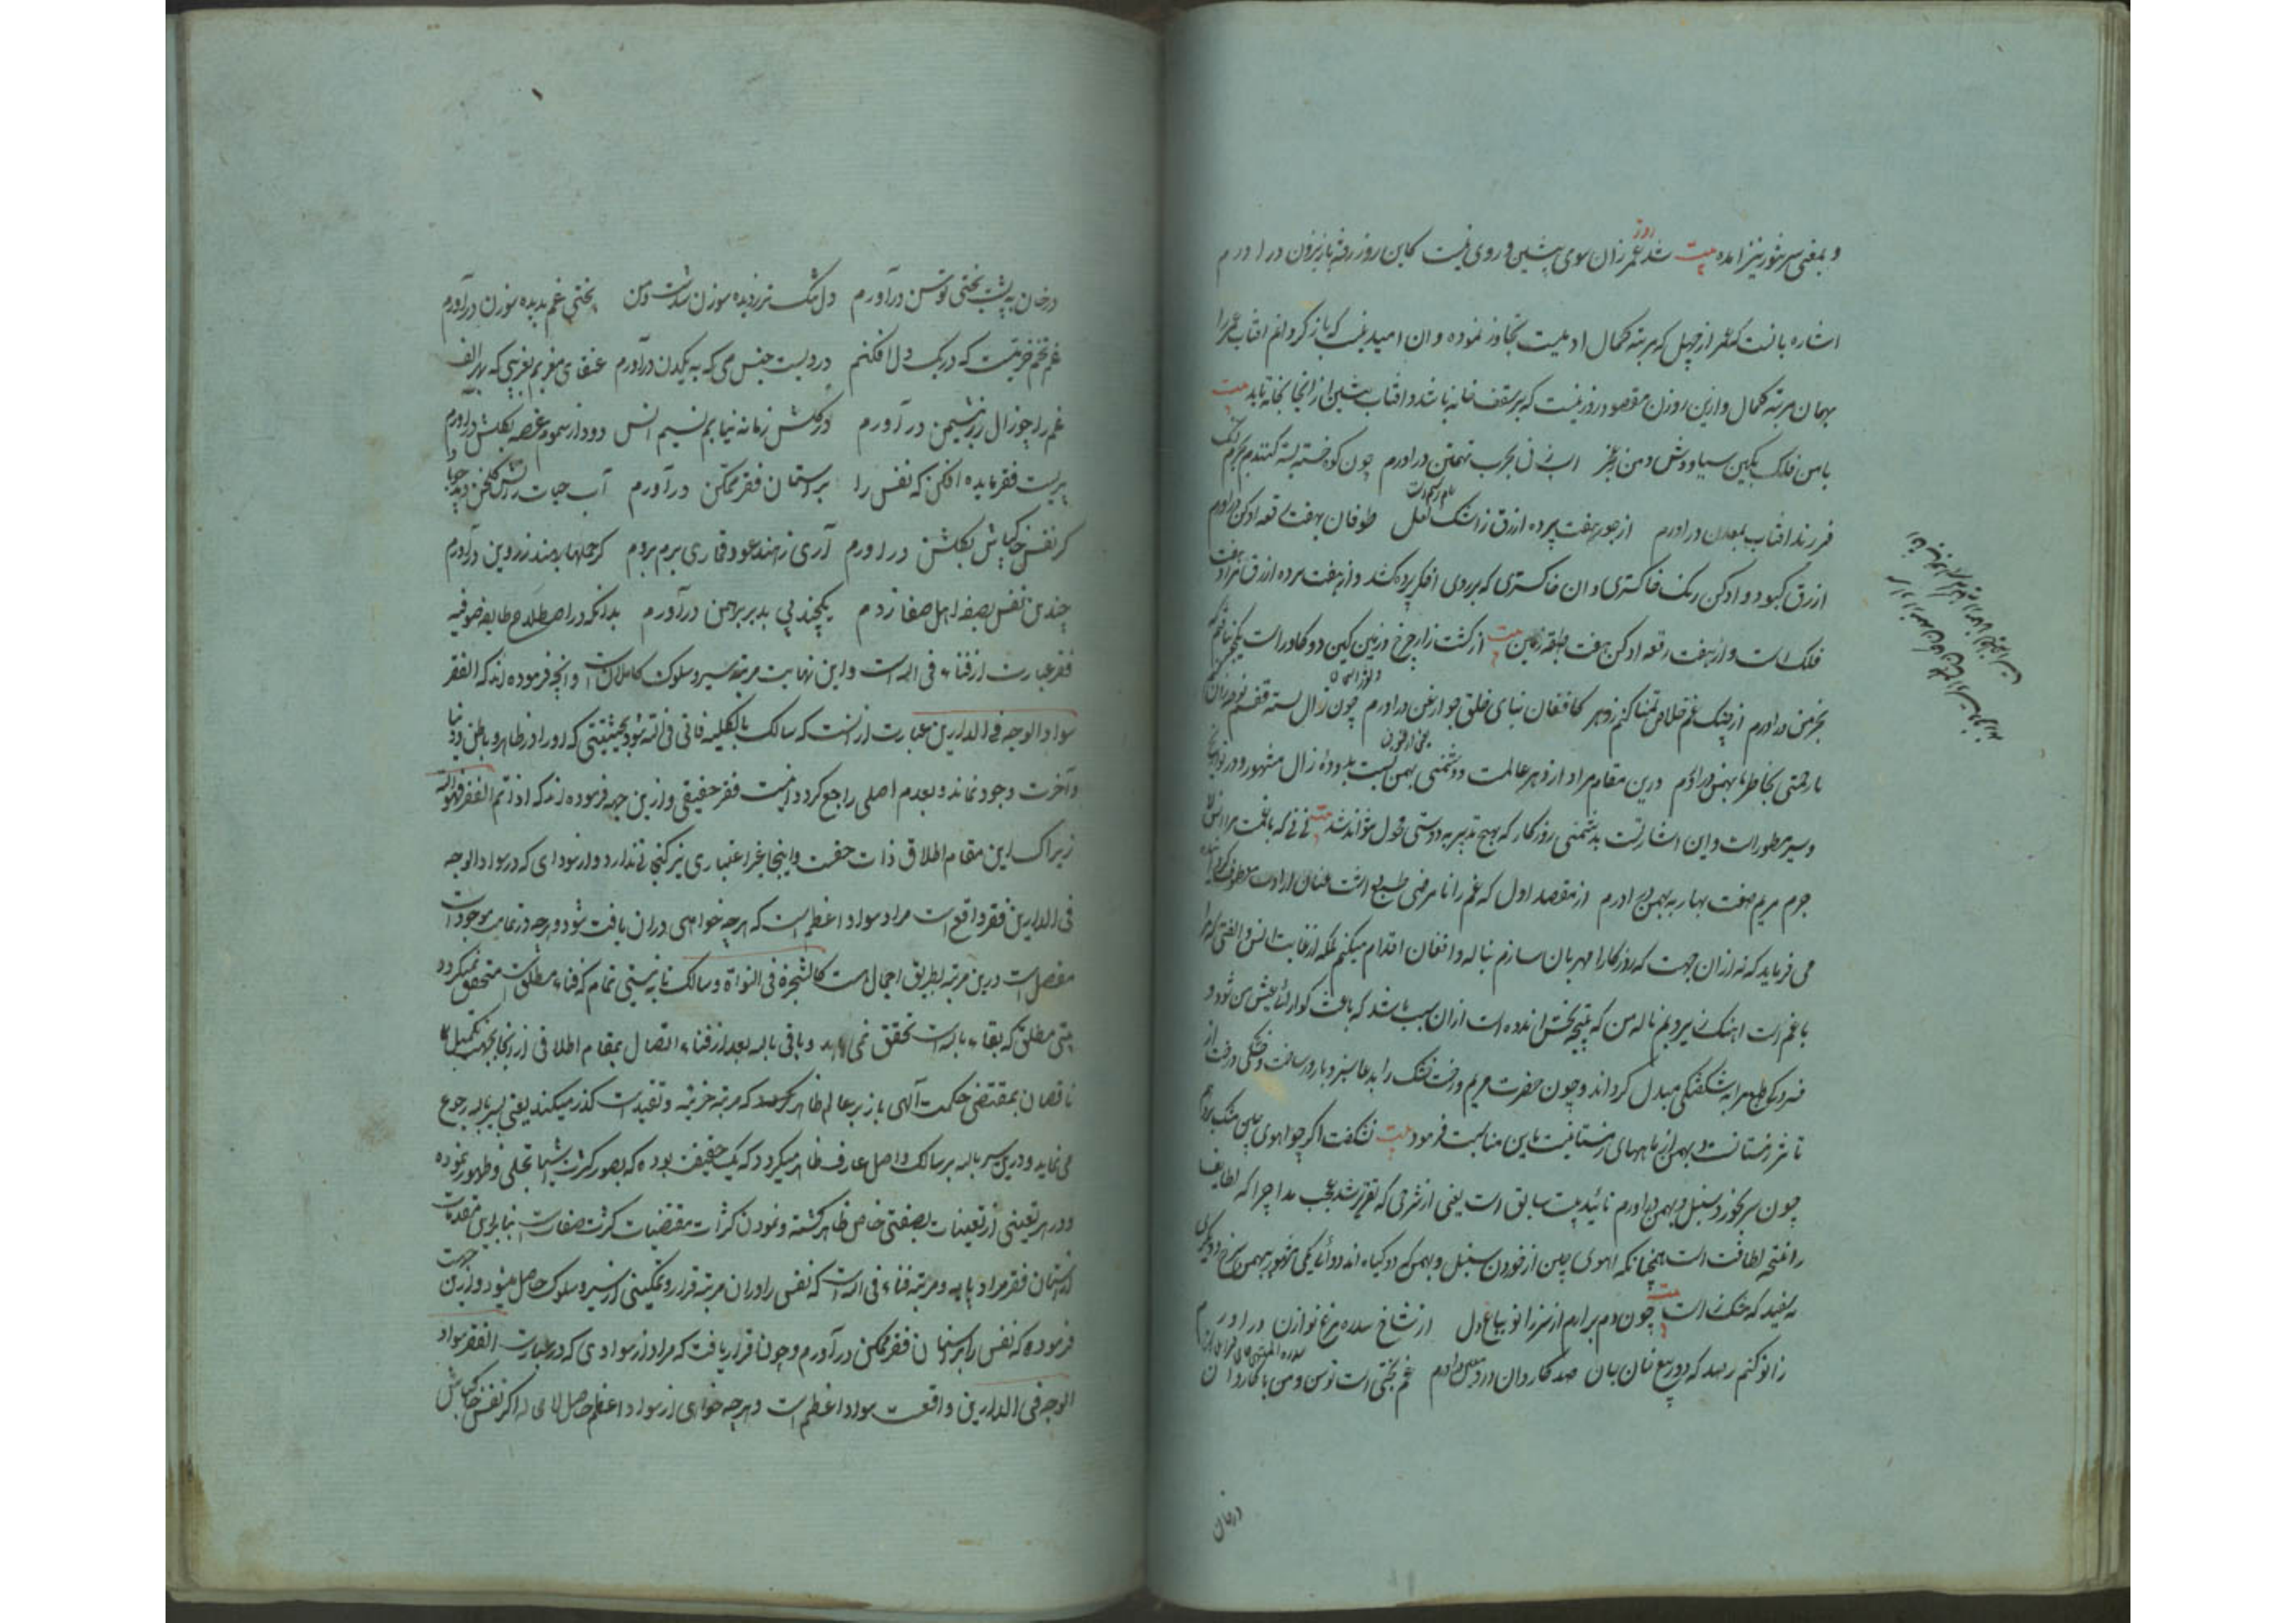 و بمعنی سرخور نیز امده بیت شد روز عمر زان سوی پیشین و روی نیست کاین روز رفته باز بروزن در اورم
اشاره بانست که عمر از چهل که مرتبه کمال ادمیت تجاوز نموده و ان امید نیست که باز کردانم افتاب عمر را
بهمان مرتبه کمال و ازین روزن مقصود روزنیست که بر سقف خانه باشد و افتاب پیشین از انجا بخانه تابد بیت
با من فلک بکین سیاووش و من ز عجز اسب نی بحرب تهمتن در اورم چون کوه خسته سینه کنندم بجرم انک
فرزند افتاب بمعدن در اورم از جور هفت پرده ازرق ز اشک لعل طوفان بهفت رقعه ادکن در اورم
ازرق کبود و ادکن رنک خاکستری و ان خاکستری که بر روی اخکر پرده کشد و از هفت پرده ازرق مراد هفت
فلک است و از هفت رقعه ادکن هفت طبقه زمین بیت از کشت زار چرخ و زمین کین دو کاو راست یکجو نیافتم که
بخرمن در اورم از چنک غم خلاص تمنا کنم ز دهر کافغان بنای خلق چو ارغن در اورم چون زال بسته قفسم نوحه زان کنم
تا رحمتی بخاطر بهمن در اورم درین مقام مراد از دهر عالمست و دشمنی بهمن نسبت بدوده زال مشهور و در تواریخ
و سیر مسطور است و این اشارتست بدشمنی روزکار که بهیچ تدبیر بدوستی محول نتواند شد بیت نی نی که با غمست مرا انس لا
جرم مریم صفت بهار به بهمن در اورم از مقصد اول که غم را نا مرضی طبیع داشت عنان ارادت معطوف کرده
می فرماید که نه از ان جهت که روزکار را مهربان سازم ناله و افغان اقدام میکنم بلکه از غایت انس و الفتی که مرا
با غم است اهنک نی میزدم ناله من که نتیجه بخش اندوه است از ان سبب باشد که باعث کوارائی عیش من شود و
فسردکی طبع مرا بشکفتکی مبدل کرداند و چون حضرت مریم درخت خشک را بدعا سبز و بارور ساخت و خشکی درخت از
تاثیر زمستانست و بهمن از ماههای زمستانیست باین مناسبت فرمود بیت نشکفت اکر چو اهوی چین مشک بر دهم
چون سر بخورد سنبل و بهمن در اورم تائید بیت سابق است یعنی از شرحی که تقریر شد عجب مدار چرا که لطایف
را نتیجه لطافت است همچنانکه اهوی چین از خوردن سنبل و بهمن که دو کیاه اند دوائی یکی مشهور بهمن سرخ و دیکری
سفید که خنک است بیت چون دم برارم از سر زانو بباغ دل از شاخ سدره مرغ نوازن در اورم
زانو کنم رصد که و در بیع نان جان صد کاروان درد معین در اورم غم بختی است توسن و من با کاروان
درخان
درخان به پشت بختی توسن در آورم دل تنک تر ز دیده سوزن شدست و من بختی غم بدیده سوزن در آورم
غم تخم خرمیست که در یک دل افکنم دردیست جنس می که به یکدن در آورم عنقای مغربم بغریبی که بهر الف
غم را چو زال زر بنشیمن در آورم در کلشن زمانه نیابم نسیم انس دود از سموم غصه بکلشن در اورم
پیریست فقر مایده افکن که نفس را بر استان فقر ممکن در آورم آب حیات ز اتش کلخن دهد
کر نفس خاکپاش بکلشن در اورم آری ز هند عود قماری برم بروم کر حملها بهند ز روین در آورم
چندین نفس بصفه اهل صفا زدم یکچند پی بدیر برهمن در آورم بدانکه در اصطلاح طایفه صوفیه
فقر عبارت از فناء فی الله است و این نهایت مرتبه سیر و سلوک کاملانست و انچه فرموده اند که الفقر
سواد الوجه فی الدارین عبارت از انست که سالک بالکلیه فانی فی الله شود بحیثیتی که او را در ظاهر و باطن و دنیا
و آخرت وجود نماند و بعدم اصلی راجع کردد و اینست فقر حقیقی و ازین جهه فرموده اند که اذا تم الفقر فهو الله
زیرا که این مقام اطلاق ذات حقست و اینجا غیر اعتباری نیز کنجائی ندارد و از سودای که در سواد الوجه
فی الدارین فقر واقع است مراد سواد اعظم است که هر چه خواهی در ان یافت شود و هر چه در تمامت موجودات
مفصل است درین مرتبه بطریق اجمال است کالشجرة فی النواة و سالک تا به نیستی تمام که فناء مطلق است متحقق نمیکردد
بهستی مطلق که بقاء بالله است تحقق نمی یابد و باقی بالله بعد از فناء و اتصال بمقام اطلاقی از انجا بجهت تکمیل
ناقصان بمقتضی حکمت آلهی باز بعالم ظاهر که مرتبه جزئیه و تقید است کذر میکند یعنی بسیر بالله رجوع
می نماید و درین سیر بالله بر سالک واصل عارف ظاهر میکردد که یک حقیقت بوده که بصور کثرت اشیا تجلی و ظهور نموده
و در هر تعینی از تعینات بصفتی خاص ظاهر کشته و نمودن کثرات مقتضیات کثرت صفات است بنا برین مقدمات
از استان فقر مراد پایه و مرتبه فناء فی الله است که نفس را در ان مرتبه قرار و تمکینی از سیر و سلوک حاصل میشود و ازین جهت
فرموده که نفس را بر استان فقر ممکن در آورم و چون قرار یافت که مراد از سوادی که در عبارت الفقر سواد
الوجه فی الدارین واقعست سواد اعظم است و هر چه خواهی از سواد اعظم حاصل اکر نفس خاکپاش